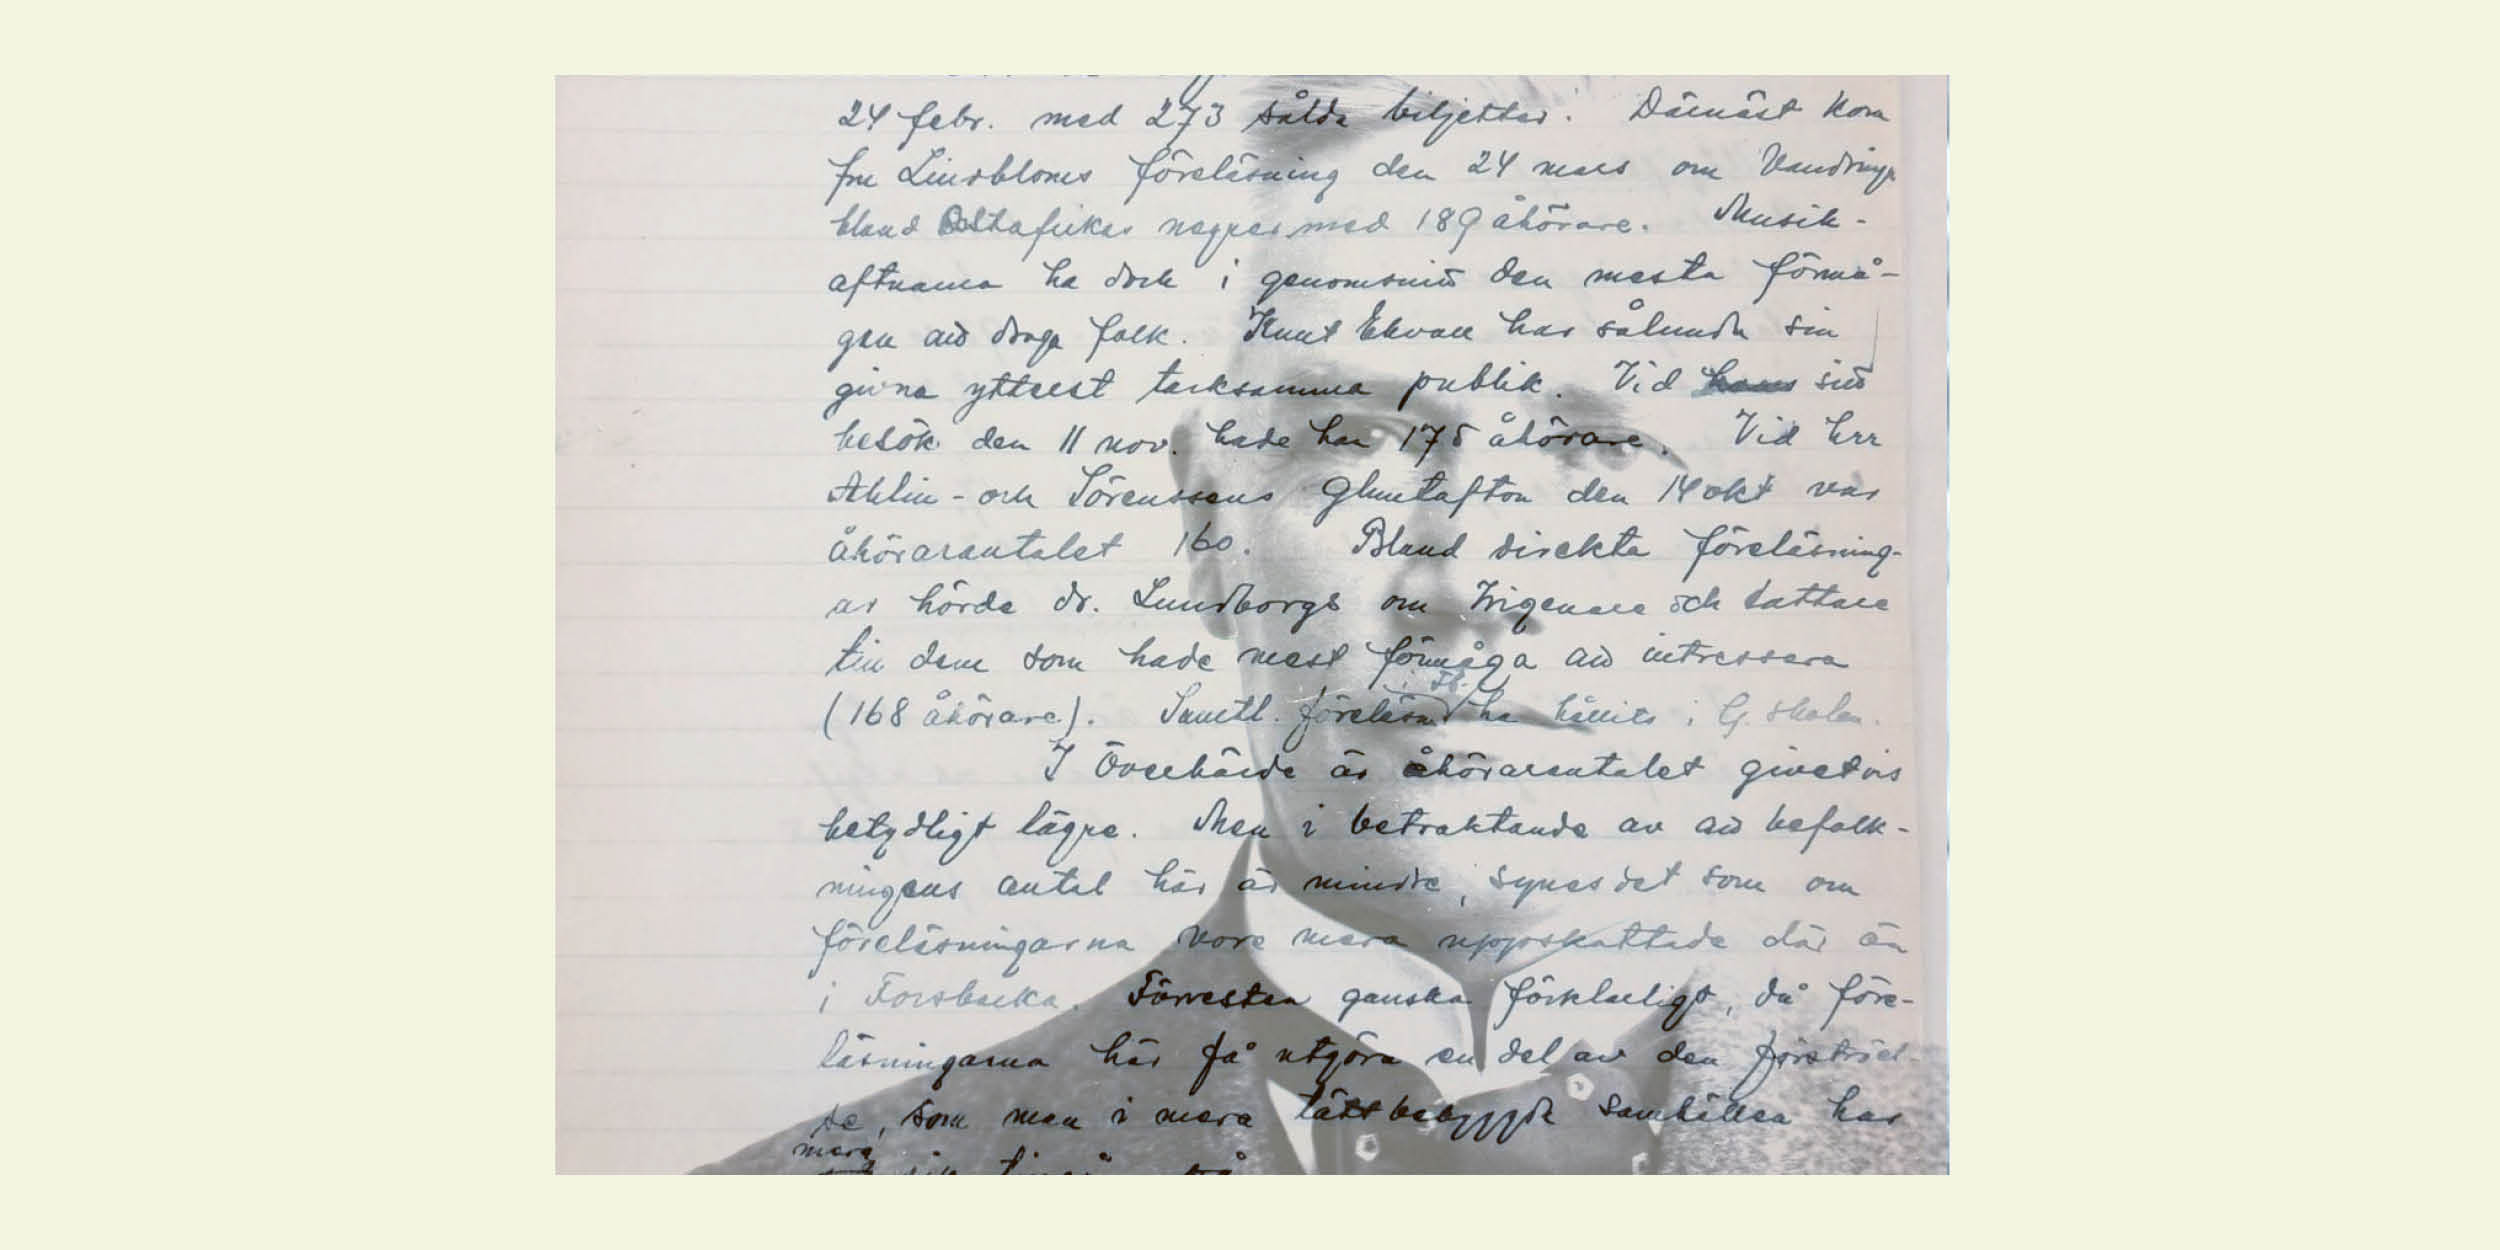 24 febr. med 273 sålda biljetter. Därnäst kom
fru Lindbloms föreläsning den 24 mars om Vandringar
bland Ostafrikas negrer med 189 åhörare. Musik-
aftnarna ha dock i genomsnitt den mesta förmå-
gan att draga folk. Knut har sålunda sin
givna ytterst tacksamma publik. Vid hans sitt
besök den 11 nov. hade han 175 åhörare. Vid herr
Ahlin- och Sörenssens Gluntafton den 14 okt var
åhörarantalet 160. Bland direkta föreläsning-
ar hörde dr. Lundborgs om Zigenare och tattare
till dem som hade mest förmåga att intressera
(168 åhörare). Samtl. föreläsn. i Fb. ha hållits i G. skolan.
I Överhärde är åhörarantalet givetvis
betydligt lägre. Men i betraktande av att befolk-
ningens antal här är mindre, synes det som om
föreläsningarna vore mera uppskattade där än
i Forsbacka. Förresten ganska förklarligt, då före-
läsningarna här få utgöra en del av den förströel-
se, som man i mera tätt bebyggda samhällen har
mera